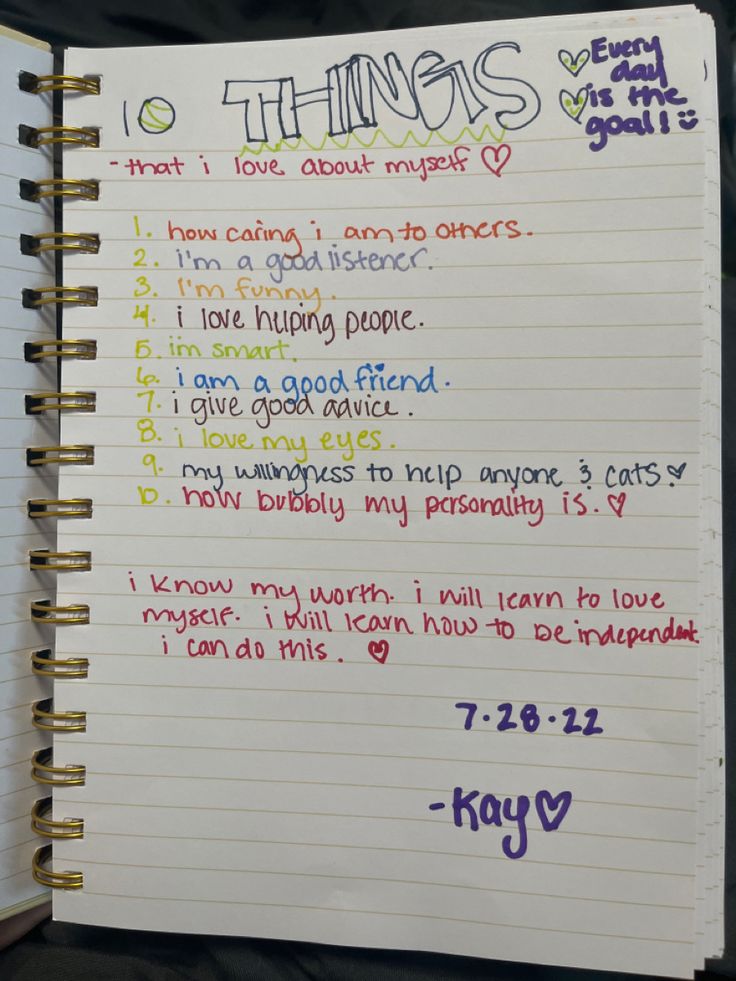 10 THINGS
Every
day
is the
goal!
- that i love about myself
1. how caring i am to others.
2. i'm a good listener.
3. I'm funny.
4. i love helping people.
5. im smart.
6. i am a good friend.
7. i give good advice.
8. i love my eyes.
9. my willingness to help anyone & cats!
10. how bubbly my personality is.
i know my worth. i will learn to love
myself. i will learn how to be independent.
i can do this.
7.28.22
-Kay